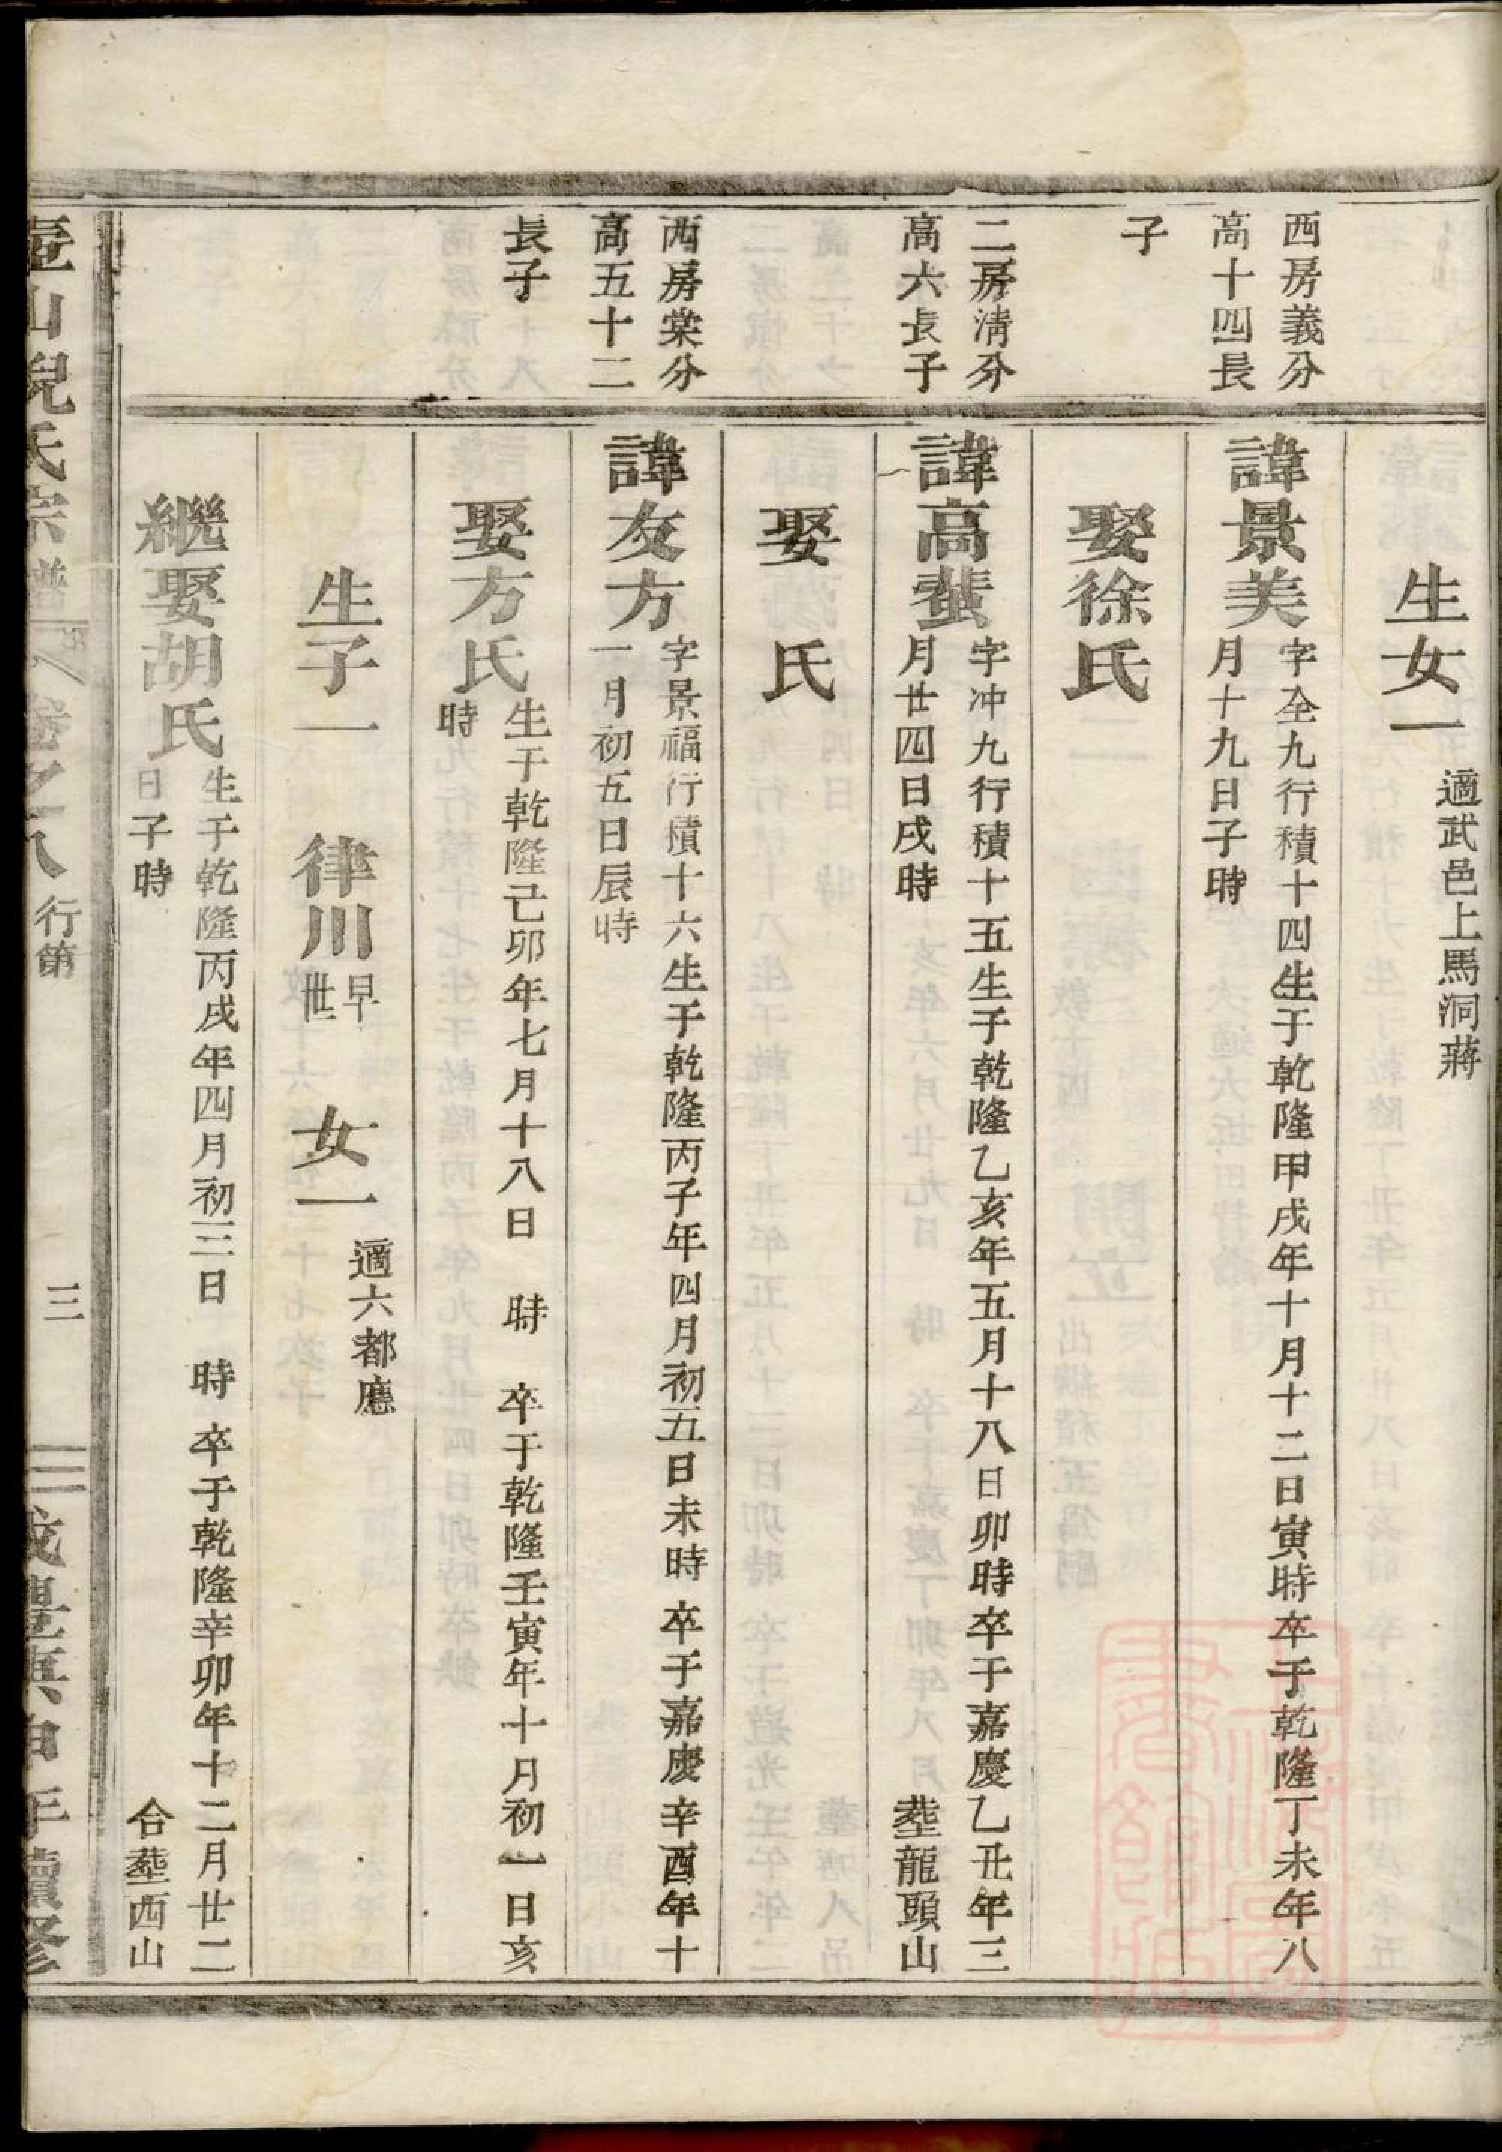 生女一
適武邑上馬洞蔣
西房義分
高十四長
子
諱景美
字全九行積十四生于乾隆甲戌年十月十二日寅時卒于乾隆丁未年八
月十九日子時
娶徐氏
二房清分
高六長子
諱高蜚
字冲九行積十五生于乾隆乙亥年五月十八日卯時卒于嘉慶乙丑年三
月廿四日戌時 塟龍頭山
娶 氏
西房棠分
高五十二
長子
諱友方
字景福行積十六生于乾隆丙子年四月初五日未時卒于嘉慶辛酉年十
一月初五日辰時
娶方氏
生于乾隆己卯年七月十八日 時 卒于乾隆壬寅年十月初一日亥
時
生子一 律川 早世 女一 適六都應
繼娶胡氏
生于乾隆丙戌年四月初三日 時 卒于乾隆辛卯年十二月廿二
日子時 合塟西山
壺山倪氏宗譜 卷之八 行第 三 咸豐庚申年續修